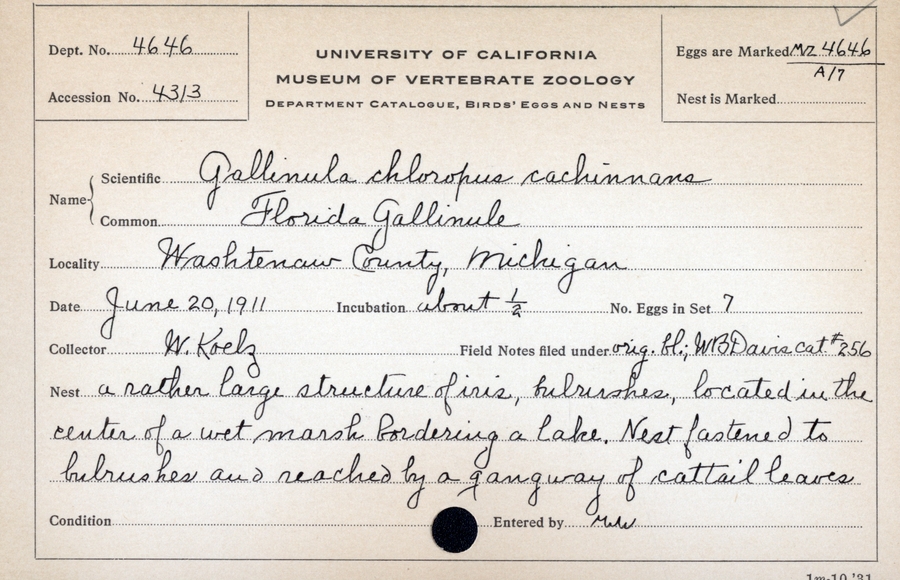 Dept. No. 4646
Accession No. 4313
UNIVERSITY OF CALIFORNIA
MUSEUM OF VERTEBRATE ZOOLOGY
DEPARTMENT CATALOGUE, BIRDS' EGGS AND NESTS
Eggs are Marked MZ 4646
A/7
Nest is Marked
Name
Scientific Gallinula chloropus cachinnans
Common Florida Gallinule
Locality Washtenaw County, Michigan
Date June 20, 1911 Incubation about 1/2 No. Eggs in Set 7
Collector W. Koelz Field Notes filed under orig. bl; WBDavis cat #256
Nest a rather large structure of iris, bulrushes, located in the
center of a wet marsh bordering a lake. Nest fastened to
bulrushes and reached by a gangway of cattail leaves
Condition Entered by
1m-10,'31